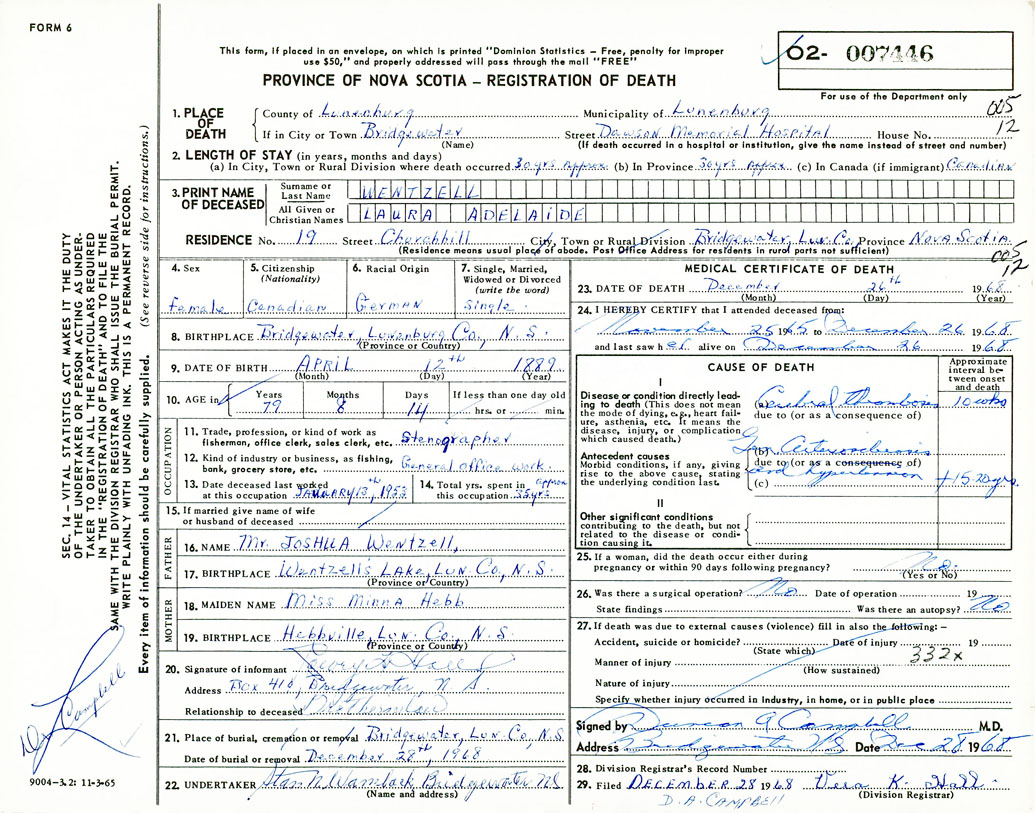 FORM 6
This form, if placed in an envelope, on which is printed "Dominion Statistics — Free, penalty for improper
use $50," and properly addressed will pass through the mail "FREE"
PROVINCE OF NOVA SCOTIA — REGISTRATION OF DEATH
02- 007446
For use of the Department only
005
12
SEC. 14 — VITAL STATISTICS ACT MAKES IT THE DUTY
OF THE UNDERTAKER OR PERSON ACTING AS UNDER-
TAKER TO OBTAIN ALL THE PARTICULARS REQUIRED
IN THE "REGISTRATION OF DEATH" AND TO FILE THE
SAME WITH THE DIVISION REGISTRAR WHO SHALL ISSUE THE BURIAL PERMIT.
WRITE PLAINLY WITH UNFADING INK. THIS IS A PERMANENT RECORD.
Every item of information should be carefully supplied. (See reverse side for instructions.)
Dr Campbell
9004-3.2: 11-3-65
1. PLACE OF DEATH
County of Lunenburg Municipality of Lunenburg
If in City or Town Bridgewater Street Dawson Memorial Hospital House No.
(Name) (If death occurred in a hospital or institution, give the name instead of street and number)
2. LENGTH OF STAY (in years, months and days)
(a) In City, Town or Rural Division where death occurred 30 yrs approx (b) In Province 30 yrs approx (c) In Canada (if immigrant) Canadian
3. PRINT NAME OF DECEASED
Surname or Last Name WENTZELL
All Given or Christian Names LAURA ADELAIDE
RESIDENCE No. 19 Street Churchhill City, Town or Rural Division Bridgewater, Lun. Co. Province Nova Scotia
(Residence means usual place of abode. Post Office Address for residents in rural parts not sufficient)
005
12
4. Sex Female
5. Citizenship (Nationality) Canadian
6. Racial Origin German
7. Single, Married, Widowed or Divorced (write the word) Single
8. BIRTHPLACE Bridgewater, Lunenburg Co., N.S.
(Province or Country)
9. DATE OF BIRTH APRIL 12th 1889
(Month) (Day) (Year)
10. AGE in Years Months Days If less than one day old
79 8 14 hrs. or min.
OCCUPATION
11. Trade, profession, or kind of work as
fisherman, office clerk, sales clerk, etc. Stenographer
12. Kind of industry or business, as fishing,
bank, grocery store, etc. General office work.
13. Date deceased last worked
at this occupation January 13th, 1953
14. Total yrs. spent in
this occupation approx 35 yrs
15. If married give name of wife
or husband of deceased
FATHER
16. NAME Mr. Joshua Wentzell,
17. BIRTHPLACE Wentzell's Lake, Lun. Co., N.S.
(Province or Country)
MOTHER
18. MAIDEN NAME Miss Minna Hebb
19. BIRTHPLACE Hebbville, Lun. Co., N.S.
(Province or Country)
20. Signature of informant Hall
Address Box 410, Bridgewater, N.S.
Relationship to deceased
21. Place of burial, cremation or removal Bridgewater, Lun Co, N.S.
Date of burial or removal December 28th, 1968
22. UNDERTAKER Bridgewater N.S.
(Name and address)
MEDICAL CERTIFICATE OF DEATH
23. DATE OF DEATH December 26th 1968
(Month) (Day) (Year)
24. I HEREBY CERTIFY that I attended deceased from:
November 25 1965 to December 26 1968
and last saw her alive on December 26 1968
CAUSE OF DEATH
Approximate interval between onset and death
I
Disease or condition directly lead-
ing to death (This does not mean
the mode of dying, e.g., heart fail-
ure, asthenia, etc. It means the
disease, injury, or complication
which caused death.)
(a) Cerebral thrombosis 10 wks
due to (or as a consequence of)
Antecedent causes
Morbid conditions, if any, giving
rise to the above cause, stating
the underlying condition last.
(b) Gen Arteriosclerosis
due to (or as a consequence of)
and hypertension
(c) + 15-20 yrs.
II
Other significant conditions
contributing to the death, but not
related to the disease or condi-
tion causing it.
25. If a woman, did the death occur either during
pregnancy or within 90 days following pregnancy? No.
(Yes or No)
26. Was there a surgical operation? No Date of operation 19
State findings Was there an autopsy? No
27. If death was due to external causes (violence) fill in also the following: —
Accident, suicide or homicide? Date of injury 19
(State which)
332x
Manner of injury
(How sustained)
Nature of injury
Specify whether injury occurred in industry, in home, or in public place
Signed by Duncan A Campbell M.D.
Address Bridgewater N.S. Date Dec 28 1968
28. Division Registrar's Record Number
29. Filed DECEMBER 28 1968 Vera K. Hall
(Division Registrar)
D. A. CAMPBELL